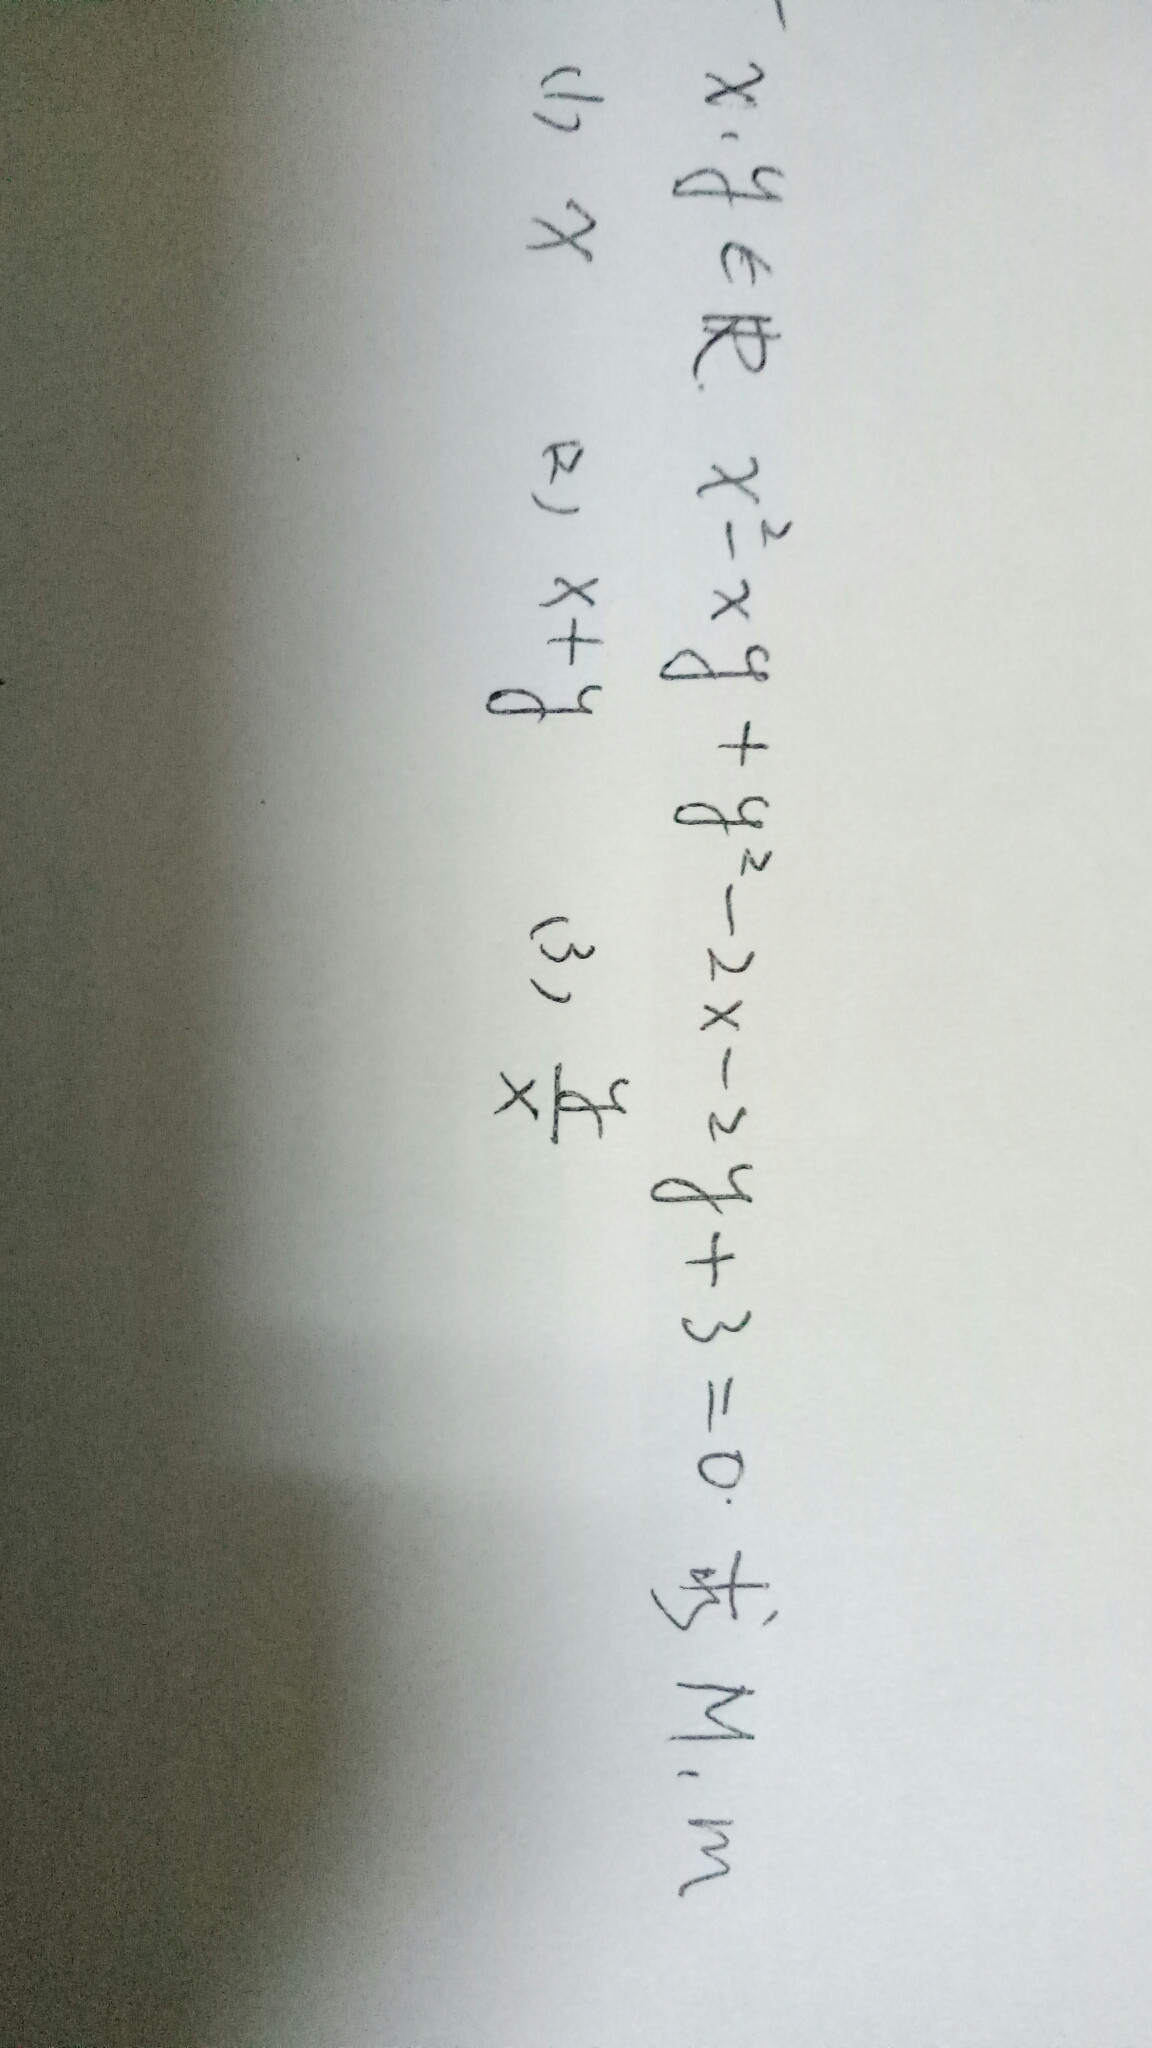 x, y ∈ ℝ. x² - xy + y² - 2x - 2y + 3 = 0. 求 M, m
(1) x (2) x+y (3) y/x